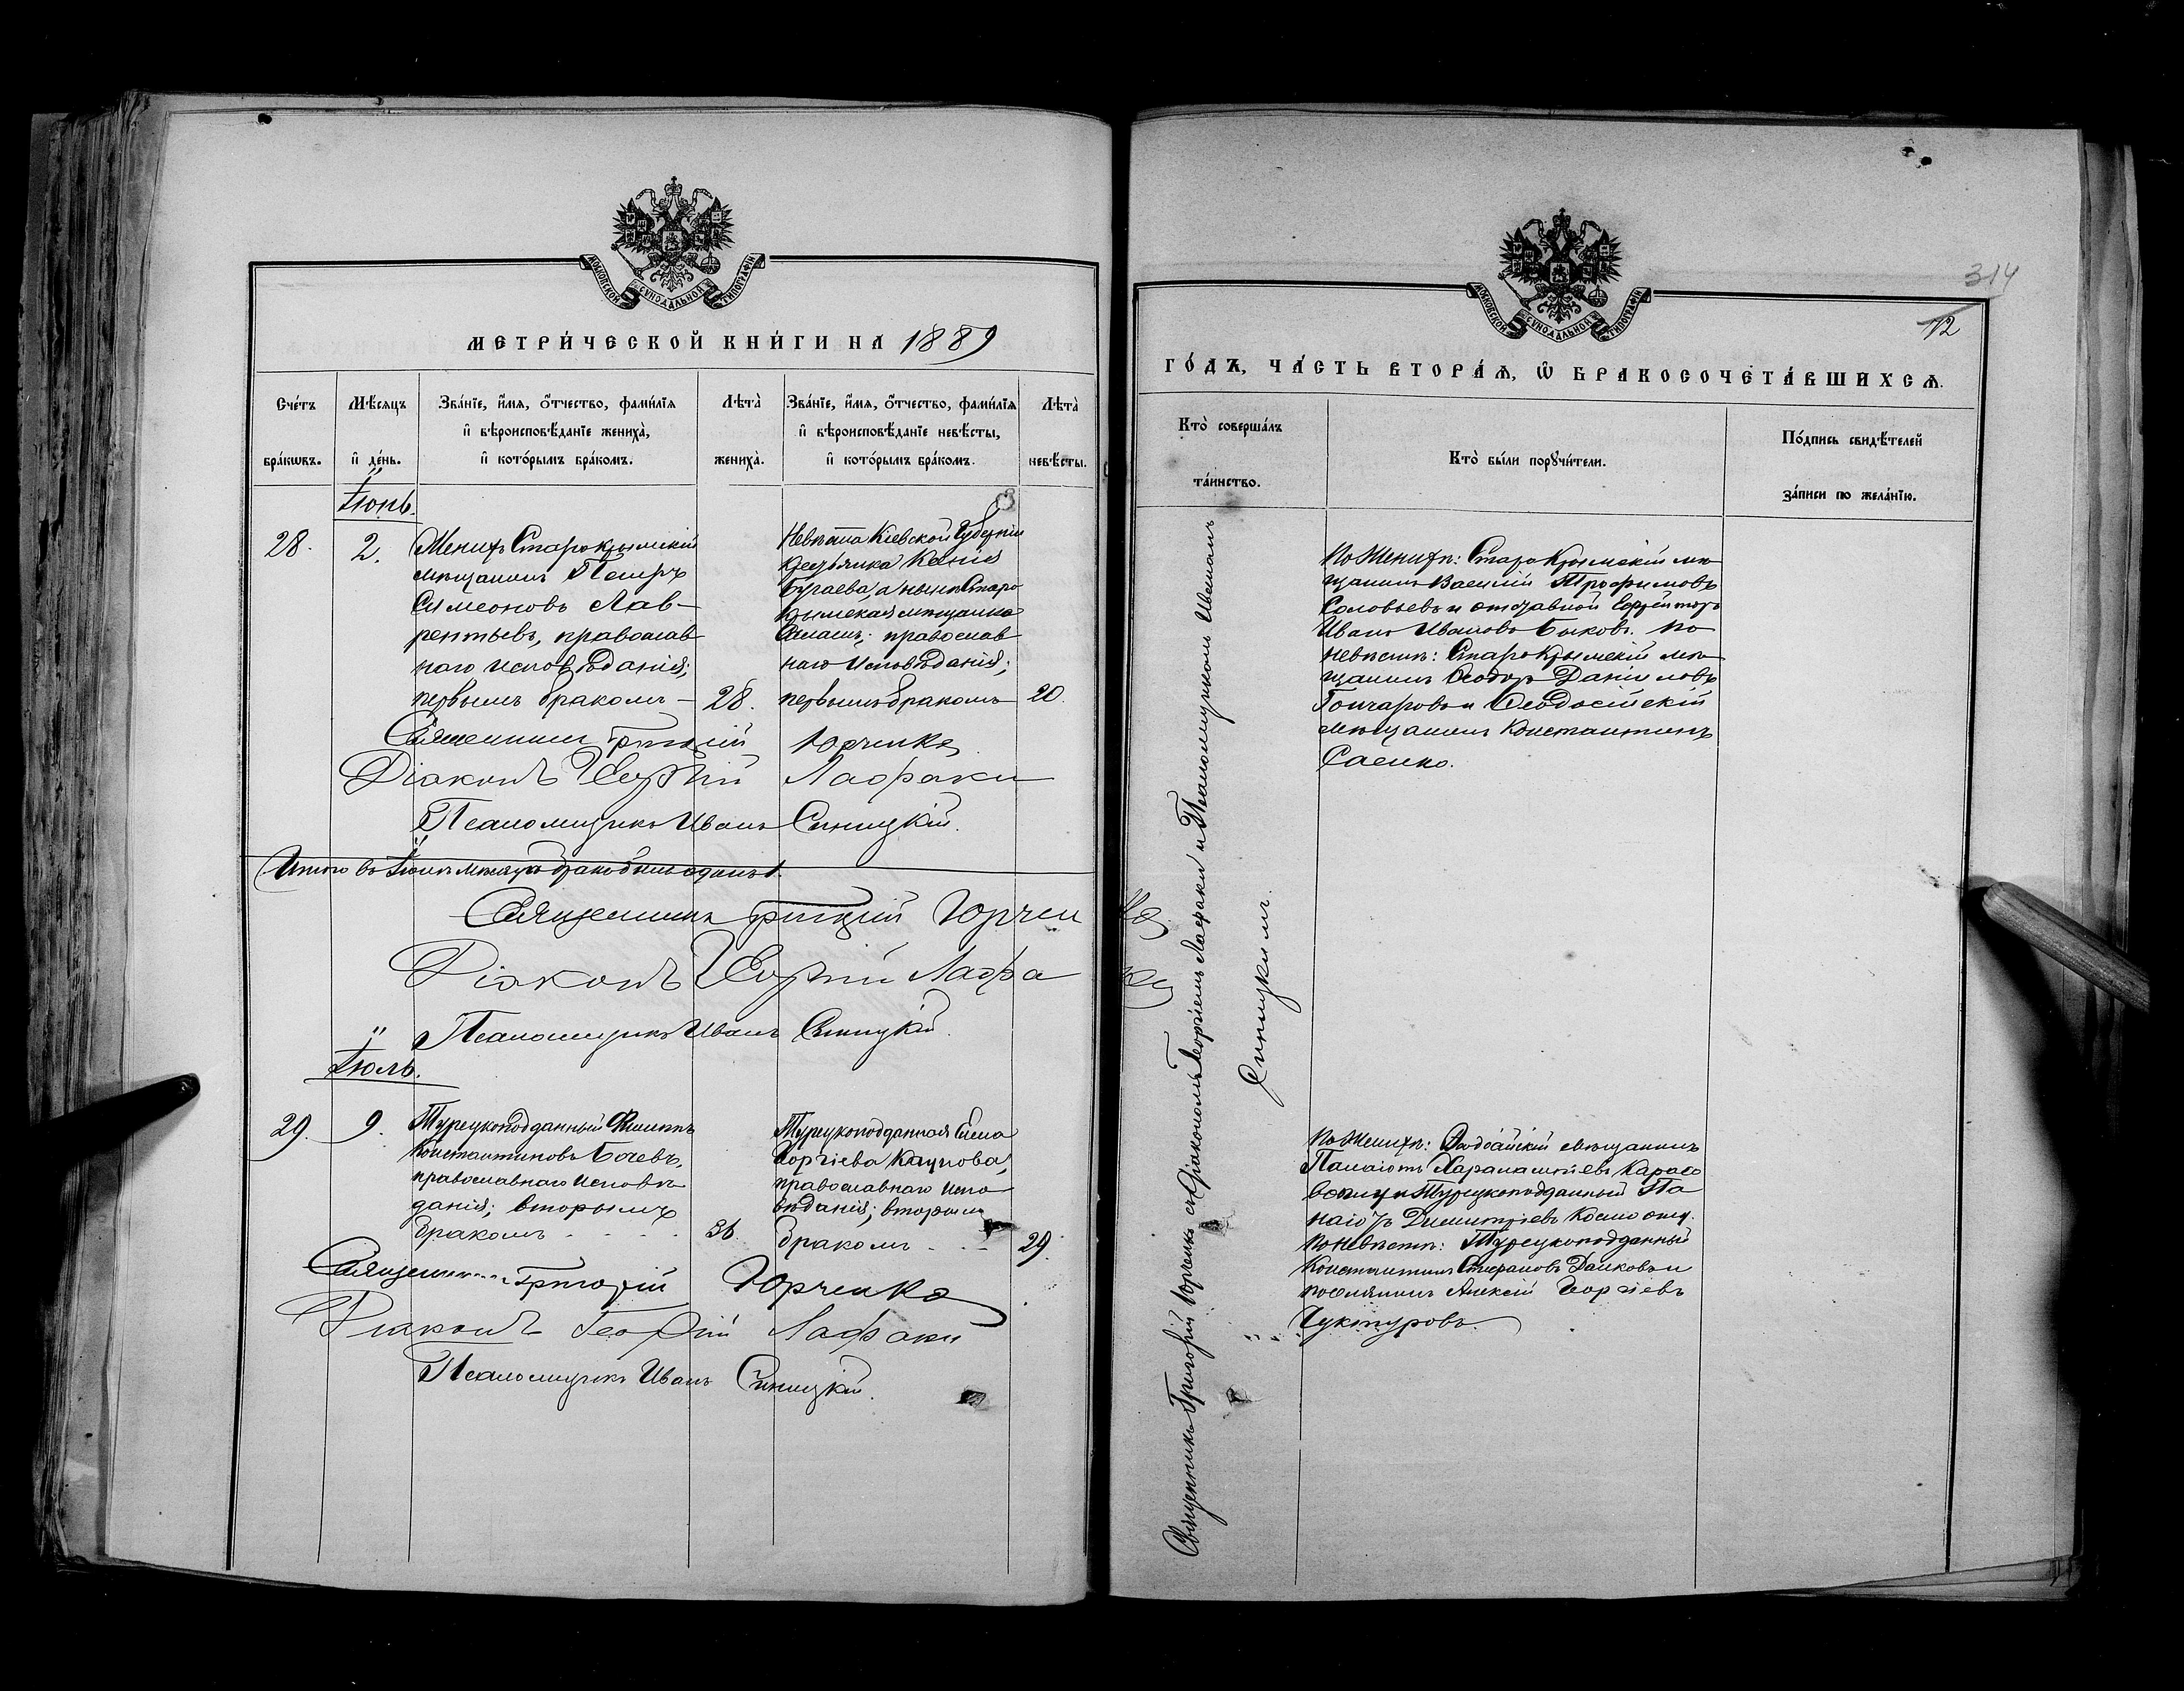 МОСКОВСКОЙ СѴНОДАЛЬНОЙ ТИПОГРАФІИ
МЕТРИ́ЧЕСКОЙ КНИ́ГИ НА 1889
Сче́тъ бра́кѡвъ.
Мѣ́сяцъ и҆ де́нь.
Зва́нїе, и҆́мя, ѻ҆́тчество, фами́лїя
и҆ вѣроисповѣ́данїе жениха̀,
и҆ кото́рымъ бра́комъ.
Лѣта̀ жениха̀.
Зва́нїе, и҆́мя, ѻ҆́тчество, фами́лїя
и҆ вѣроисповѣ́данїе невѣ́сты,
и҆ кото́рымъ бра́комъ.
Лѣта̀ невѣ́сты.
Іюнь.
28.
2.
Женихъ Старокрымскій
мѣщанинъ Петръ
Симеоновъ Лав-
рентьевъ, православ
наго исповѣданія;
первымъ бракомъ –
28.
Невѣста Кіевской Губерніи
крестьянка
а нынѣ Старо
крымская мѣщанка
православ
наго исповѣданія;
первымъ бракомъ
20.
Священникъ Григорій Юрченко
Діаконъ Георгій Лафаки
Псаломщикъ Иванъ Синицкій.
Итого въ Іюнѣ мѣсяцѣ браковъ одинъ 1.
Священникъ Григорій Юрченко
Діаконъ Георгій Лафаки
Псаломщикъ Иванъ Синицкій.
Іюль.
29.
9.
Турецкоподданный Филиппъ
Константиновъ Бочевъ,
православнаго исповѣ
данія; вторымъ
бракомъ
36.
Турецкоподданная Елена
Георгіева
православнаго испо
вѣданія; вторымъ
бракомъ
29.
Священникъ Григорій Юрченко
Діаконъ Георгій Лафаки
Псаломщикъ Иванъ Синицкій.
314
12
МОСКОВСКОЙ СѴНОДАЛЬНОЙ ТИПОГРАФІИ
ГО́ДЪ, ЧА́СТЬ ВТОРА́Я, Ѡ҆ БРАКОСОЧЕТА́ВШИХСЯ.
Кто̀ соверша́лъ
та́инство.
Кто̀ бы́ли порꙋчи́тели.
По́дпись свидѣ́телей
за́писи по жела́нїю.
Священникъ Григорій Юрченко съ Діакономъ Георгіемъ Лафаки и Псаломщикомъ Иваномъ
Синицкимъ.
По Женихѣ: СтароКрымскій мѣ
щанинъ Василій Трофимовъ
Соловьевъ и отставной Ефрейторъ
Иванъ Ивановъ Быковъ. По
невѣстѣ: СтароКрымскій мѣ
щанинъ Ѳеодоръ Даниловъ
Гончаровъ и Ѳеодосійскій
мѣщанинъ Константинъ
Саенко.
По Женихѣ: Ѳеодосійскій Мѣщанинъ
Панаіотъ Харалампіевъ Карасо
и Турецкоподданный Па
наіотъ Димитріевъ
По невѣстѣ: Турецкоподданный
Константинъ Стефановъ Данковъ и
поселянинъ Алексій Георгіевъ
Чуктуровъ.